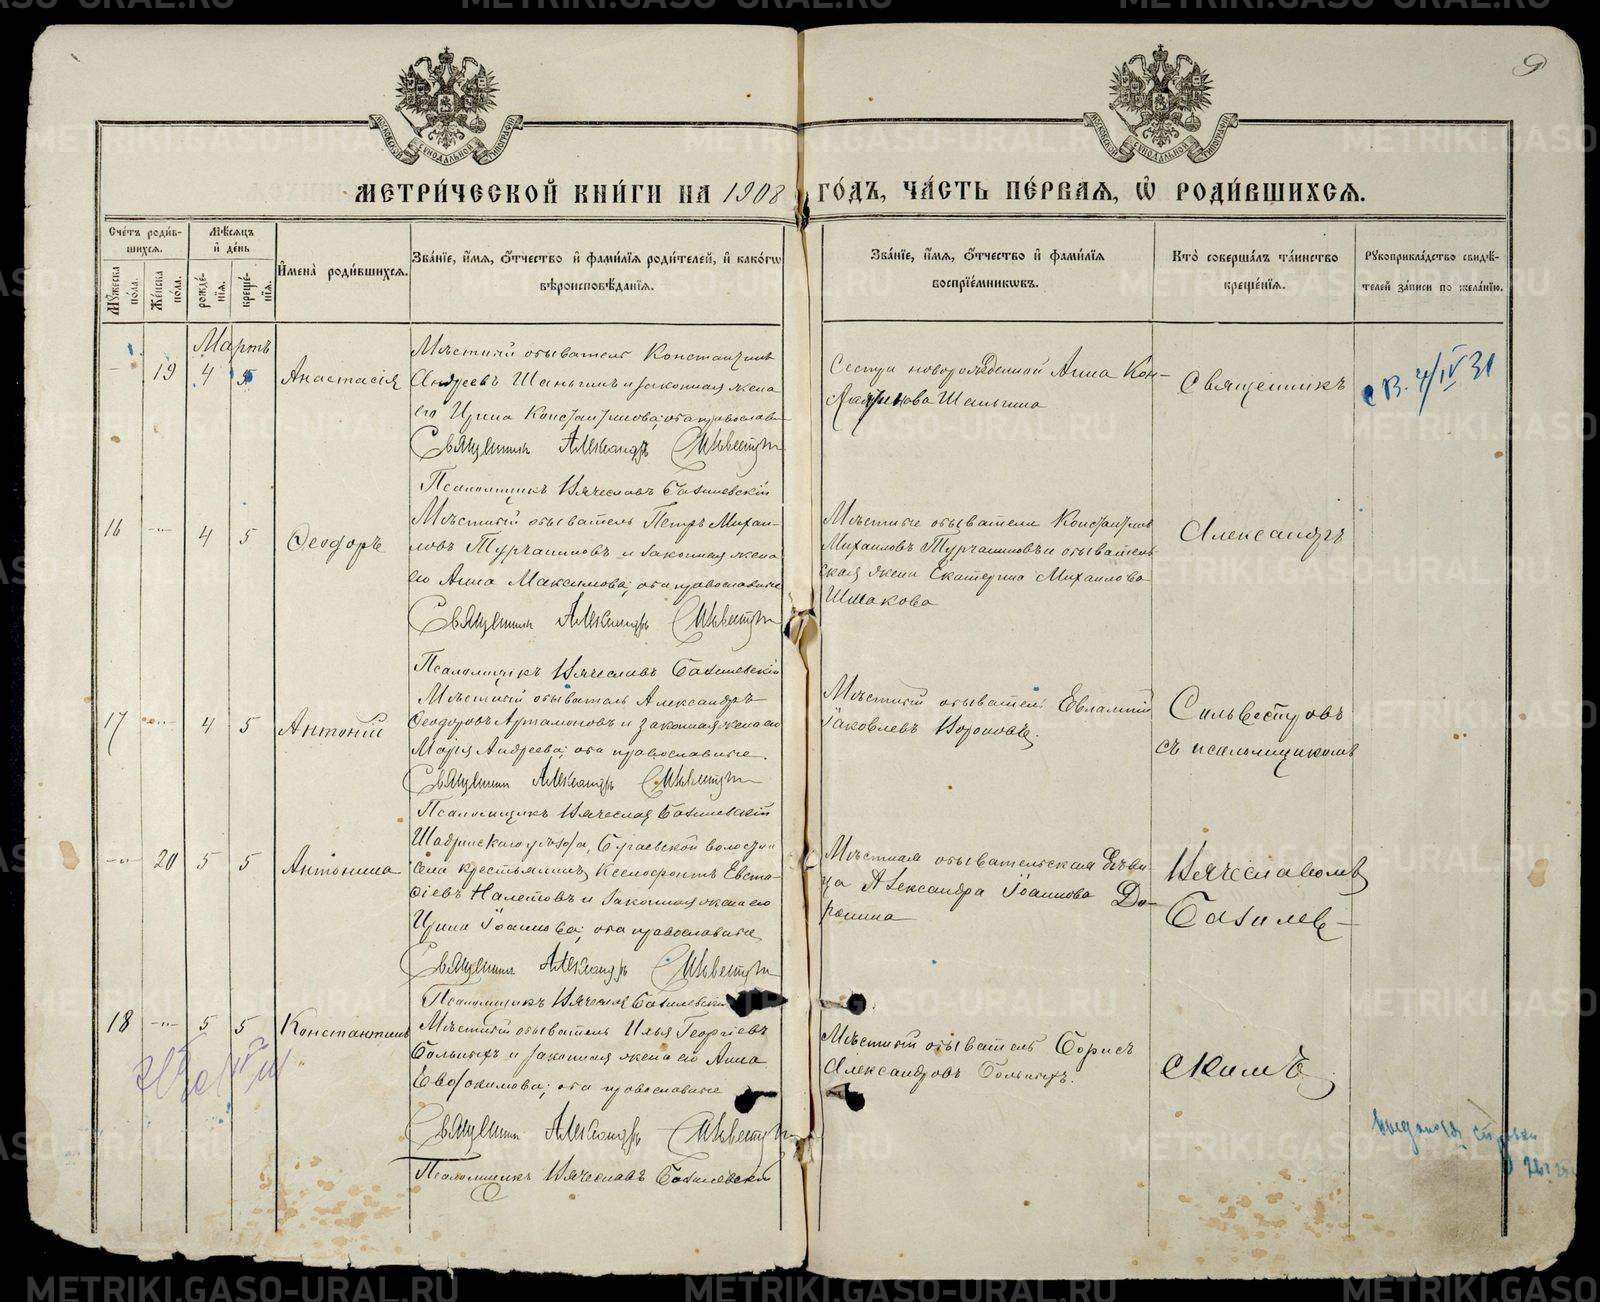 9
МОСКОВСКОЙ СѴНОДАЛЬНОЙ ТИПОГРАФІИ
МОСКОВСКОЙ СѴНОДАЛЬНОЙ ТИПОГРАФІИ
МЕТРИ́ЧЕСКОЙ КНИ́ГИ НА 1908 ГО́ДЪ, ЧА́СТЬ ПЕ́РВАЯ, Ѡ РОДИ́ВШИХСЯ.
Сче́тъ роди́в-
шихся.
Му́жеска по́ла.
Же́нска по́ла.
Мѣ́сяцъ
и де́нь
рожде́-
нія.
креще́-
нія.
Имена̀ роди́вшихся.
Зва́нїе, и́мя, о́тчество и фами́лїя роди́телей, и како́гѡ
вѣроисповѣ́данїя.
Зва́нїе, и́мя, о́тчество и фами́лїя
воспрїе́мникѡвъ.
Кто̀ соверша́лъ та́инство
креще́нїя.
Рукоприкла́дство свидѣ́-
телей за́писи по жела́нїю.
Мартъ
19 4 5 Анастасія
Мѣстный обыватель Константинъ
Андреевъ Шаньгинъ и законная жена
его Ирина Константинова; оба православн
Священникъ Александръ Сильвестровъ
Псаломщикъ Вячеславъ Базилевскій
Сестра новорожденной Анна Кон-
стантинова Шаньгина
Священникъ
св. 4/IV 31
16 -„- 4 5 Ѳеодоръ
Мѣстный обыватель Петръ Михаи-
ловъ Турчаниновъ и законная жена
его Анна Максимова; оба православные
Священникъ Александръ Сильвестровъ
Псаломщикъ Вячеславъ Базилевскій
Мѣстные обыватели Константинъ
Михаиловъ Турчаниновъ и обыватель-
ская жена Екатерина Михаилова
Шмакова
Александръ
17 -„- 4 5 Антоній
Мѣстный обыватель Александръ
Ѳеодоровъ Артамоновъ и законная жена его
Марія Андреева; оба православные.
Священникъ Александръ Сильвестровъ
Псаломщикъ Вячеславъ Базилевскій
Мѣстный обыватель Евлампій
Іаковлевъ Вороновъ.
Сильвестровъ
съ псаломщикомъ
-„- 20 5 5 Антонина
Шадринскаго уѣзда, Бугаевской волости и
села крестьянинъ Ксенофонтъ Евста-
фіевъ Налетовъ и законная жена его
Ирина Іоаннова; оба православные
Священникъ Александръ Сильвестровъ
Псаломщикъ Вячеславъ Базилевскій
Мѣстная обывательская дѣви-
ца Александра Іоаннова До-
ронина
Вячеславомъ
Базилев-
18 -„- 5 5 Константинъ
Мѣстный обыватель Илья Георгіевъ
Больныхъ и законная жена его Анна
Евдокимова; оба православные
Священникъ Александръ Сильвестровъ
Псаломщикъ Вячеславъ Базилевскій
Мѣстный обыватель Борисъ
Александровъ Больныхъ.
скимъ
METRIKI.GASO-URAL.RU